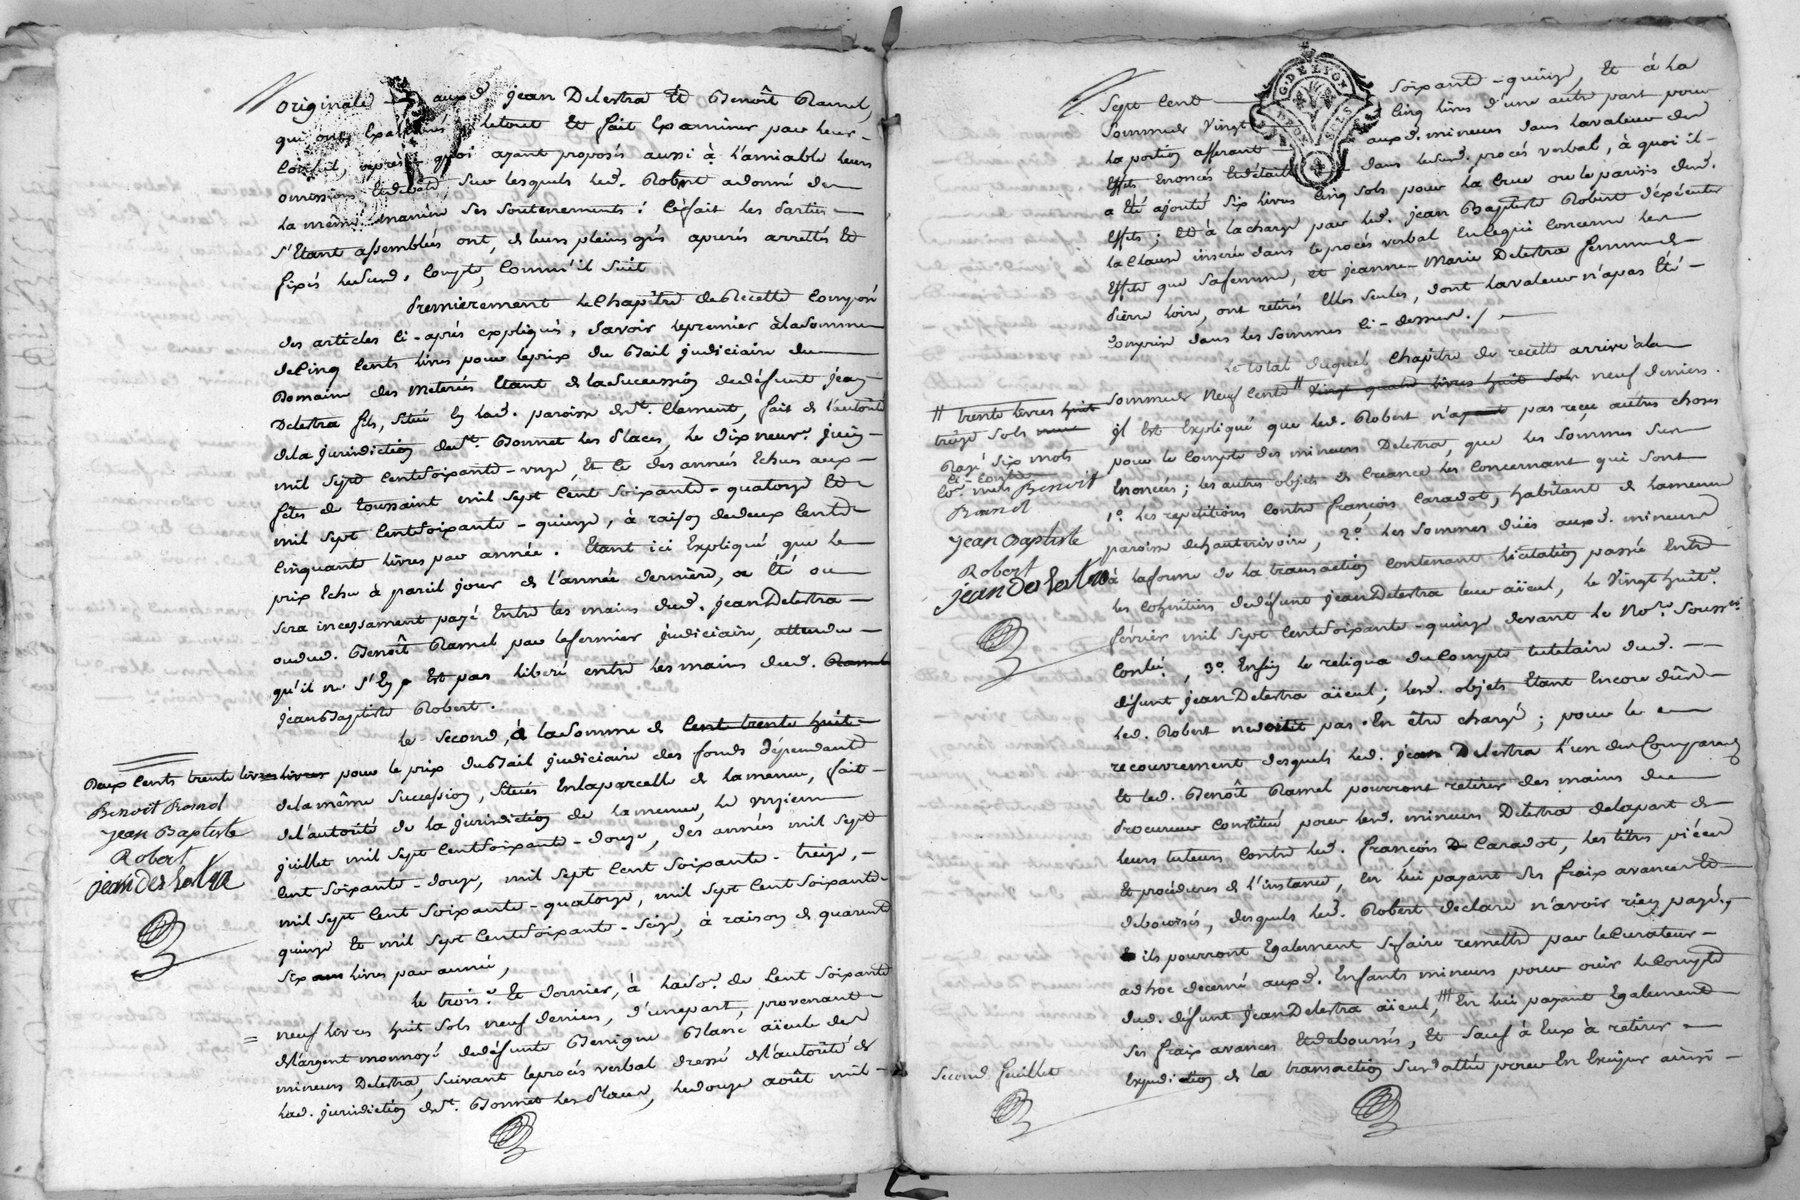 originale auxd. jean Delestra et Benoît Ramel,
qui ont examinés letout et fait examiner par leur
Conseil, après quoi ayant proposés aussi à l'amiable leurs
omissions et debats, sur lesquels led. Robert a donné de
la même manière ses soutenements; Ce fait les Parties
s'Etant assemblés ont, de leurs pleins grés apurés arrettés et
fixés led. Compte, Comm'il suit
Premierement le Chapitre de Recette Composé
des articles Ci-aprés expliqués, Savoir le premier à la somme
de Cinq Cents livres pour le prix du Bail judiciaire du
Domaine des Meteries Etant de la Succession dudéfunt Jean
Delestra fils, Situé en lad. paroisse de St. Clement, fait de l'autorité
de la jurisdiction de St. Bonnet les Places, le dix neuve. juin
mil sept Cent Soixante-onze, et Ce des années Echues aux
fêtes de Toussaint mil sept Cent Soixante-quatorze et
mil sept Cent Soixante-quinze, à raison de deux Cents
Cinquante livres par année. Etant ici Expliqué que le
prix Echu à pareil jour de l'année derniere, a Eté ou
sera incessament payé Entre les mains dud. jean Delestra
oudud. Benoît Ramel par le fermier judiciaire, attendu
qu'il ne s'En Est pas liberé entre les mains dud. Ramel
jean Baptiste Robert.
le Second, à la Somme de Cent trente huit
Deux Cents trente livres livres pour le prix du Bail judiciaire des fonds dépendants
Benoit Ramel
jean Baptiste
Robert
jean Deslestra
de la même Succession, Situés En la parcelle de lamenue, fait
de l'autorité de la jurisdiction de lamenue, le onzieme
juillet mil sept Cent Soixante-douze, des années mil sept
Cent Soixante-douze, mil sept Cent Soixante-treize,
mil sept Cent Soixante-quatorze, mil sept Cent Soixante
quinze et mil sept Cent Soixante-seize, à raison de quarente
Six livres par année,
le trois.e et dernier, à la So.e de Cent Soixante
neuf livres huit sols neuf deniers, d'unepart, provenant
de l'argent monnoyé dedéfunte Benigne Blanc aïeule des
mineurs Delestra, Suivant le procés verbal dressé de l'autorité de
lad. jurisdiction de St. Bonnet les Places, le douze août mil
Sept Cent Soixante-quinze, Et à la
Somme de Vingt Cinq livres d'une autre part pour
la portion afferante auxd. mineurs dans la valeur des
Effets Enoncés Endétail dans led. procés verbal, à quoi il
a Eté ajouté Six livres Cinq Sols pour la Crue ou le parisis desd.
Effets; et à la charge par led. jean Baptiste Robert d'éxécuter
la Clause inserée dans le procés verbal En Ce qui Concerne les
Effets que sa femme, et jeanne-Marie Delestra femme de
Pierre loire, ont retirés Elles Seules, dont la valeur n'a pas Eté
Comprise dans les Sommes Ci-dessus./.
G. DE LYON
DEUX SOLS
Le total duquel Chapitre de recette arrive à la
Somme de Neuf Cents # Vingt quatre livres huit sols neuf deniers.
# trente livres huit
treize sols
Rayé Six mots
Benoit
Ramel
jean Baptiste
Robert
jean Deslestra
Il Est Expliqué que led. Robert n'a pas reçu autres choses
pour le Compte des mineurs Delestra, que les Sommes Sus
Enoncées; les autres objets de Creance les Concernant qui Sont
1.o les repetitions Contre françois Caradot, habitant de lamenue
paroisse de hauterivoire, 2.o les Sommes düës auxd. mineurs
à la forme de la transaction Contenant licitation passée Entre
les Coheritiers dedéfunt jean Delestra leur aïeul, le Vingt huit.e
fevrier mil sept Cent Soixante-quinze devant le No.re Sous.né
Conlu, 3.o Enfin le reliqua du Compte tutelaire dud.
défunt jean Delestra aïeul; lesd. objets Etant Encore dûs
led. Robert ne doit pas En être chargé; pour le
recouvrement desquels led. jean Delestra l'un des Comparants
Et led. Benoît Ramel pourront retirer des mains du
Procureur Constitué pour lesd. mineurs Delestra de la part de
leurs tuteurs Contre led. françois Caradot, les titres piéces
et procédures de l'instance, En lui payant Ses fraix avances Et
deboursés, desquels led. Robert declare n'avoir rien payé,
ils pourront Egalement se faire remettre par le Curateur
adhoc decerné auxd. Enfants mineurs pour ouïr le Compte
dud. défunt jean Delestra aïeul, En lui payant Egalement
Ses fraix avances Etdeboursés, Et Sauf à Eux à retirer
Expedition de la transaction Susdattée pour En Exiger ainsi
Second feuillet